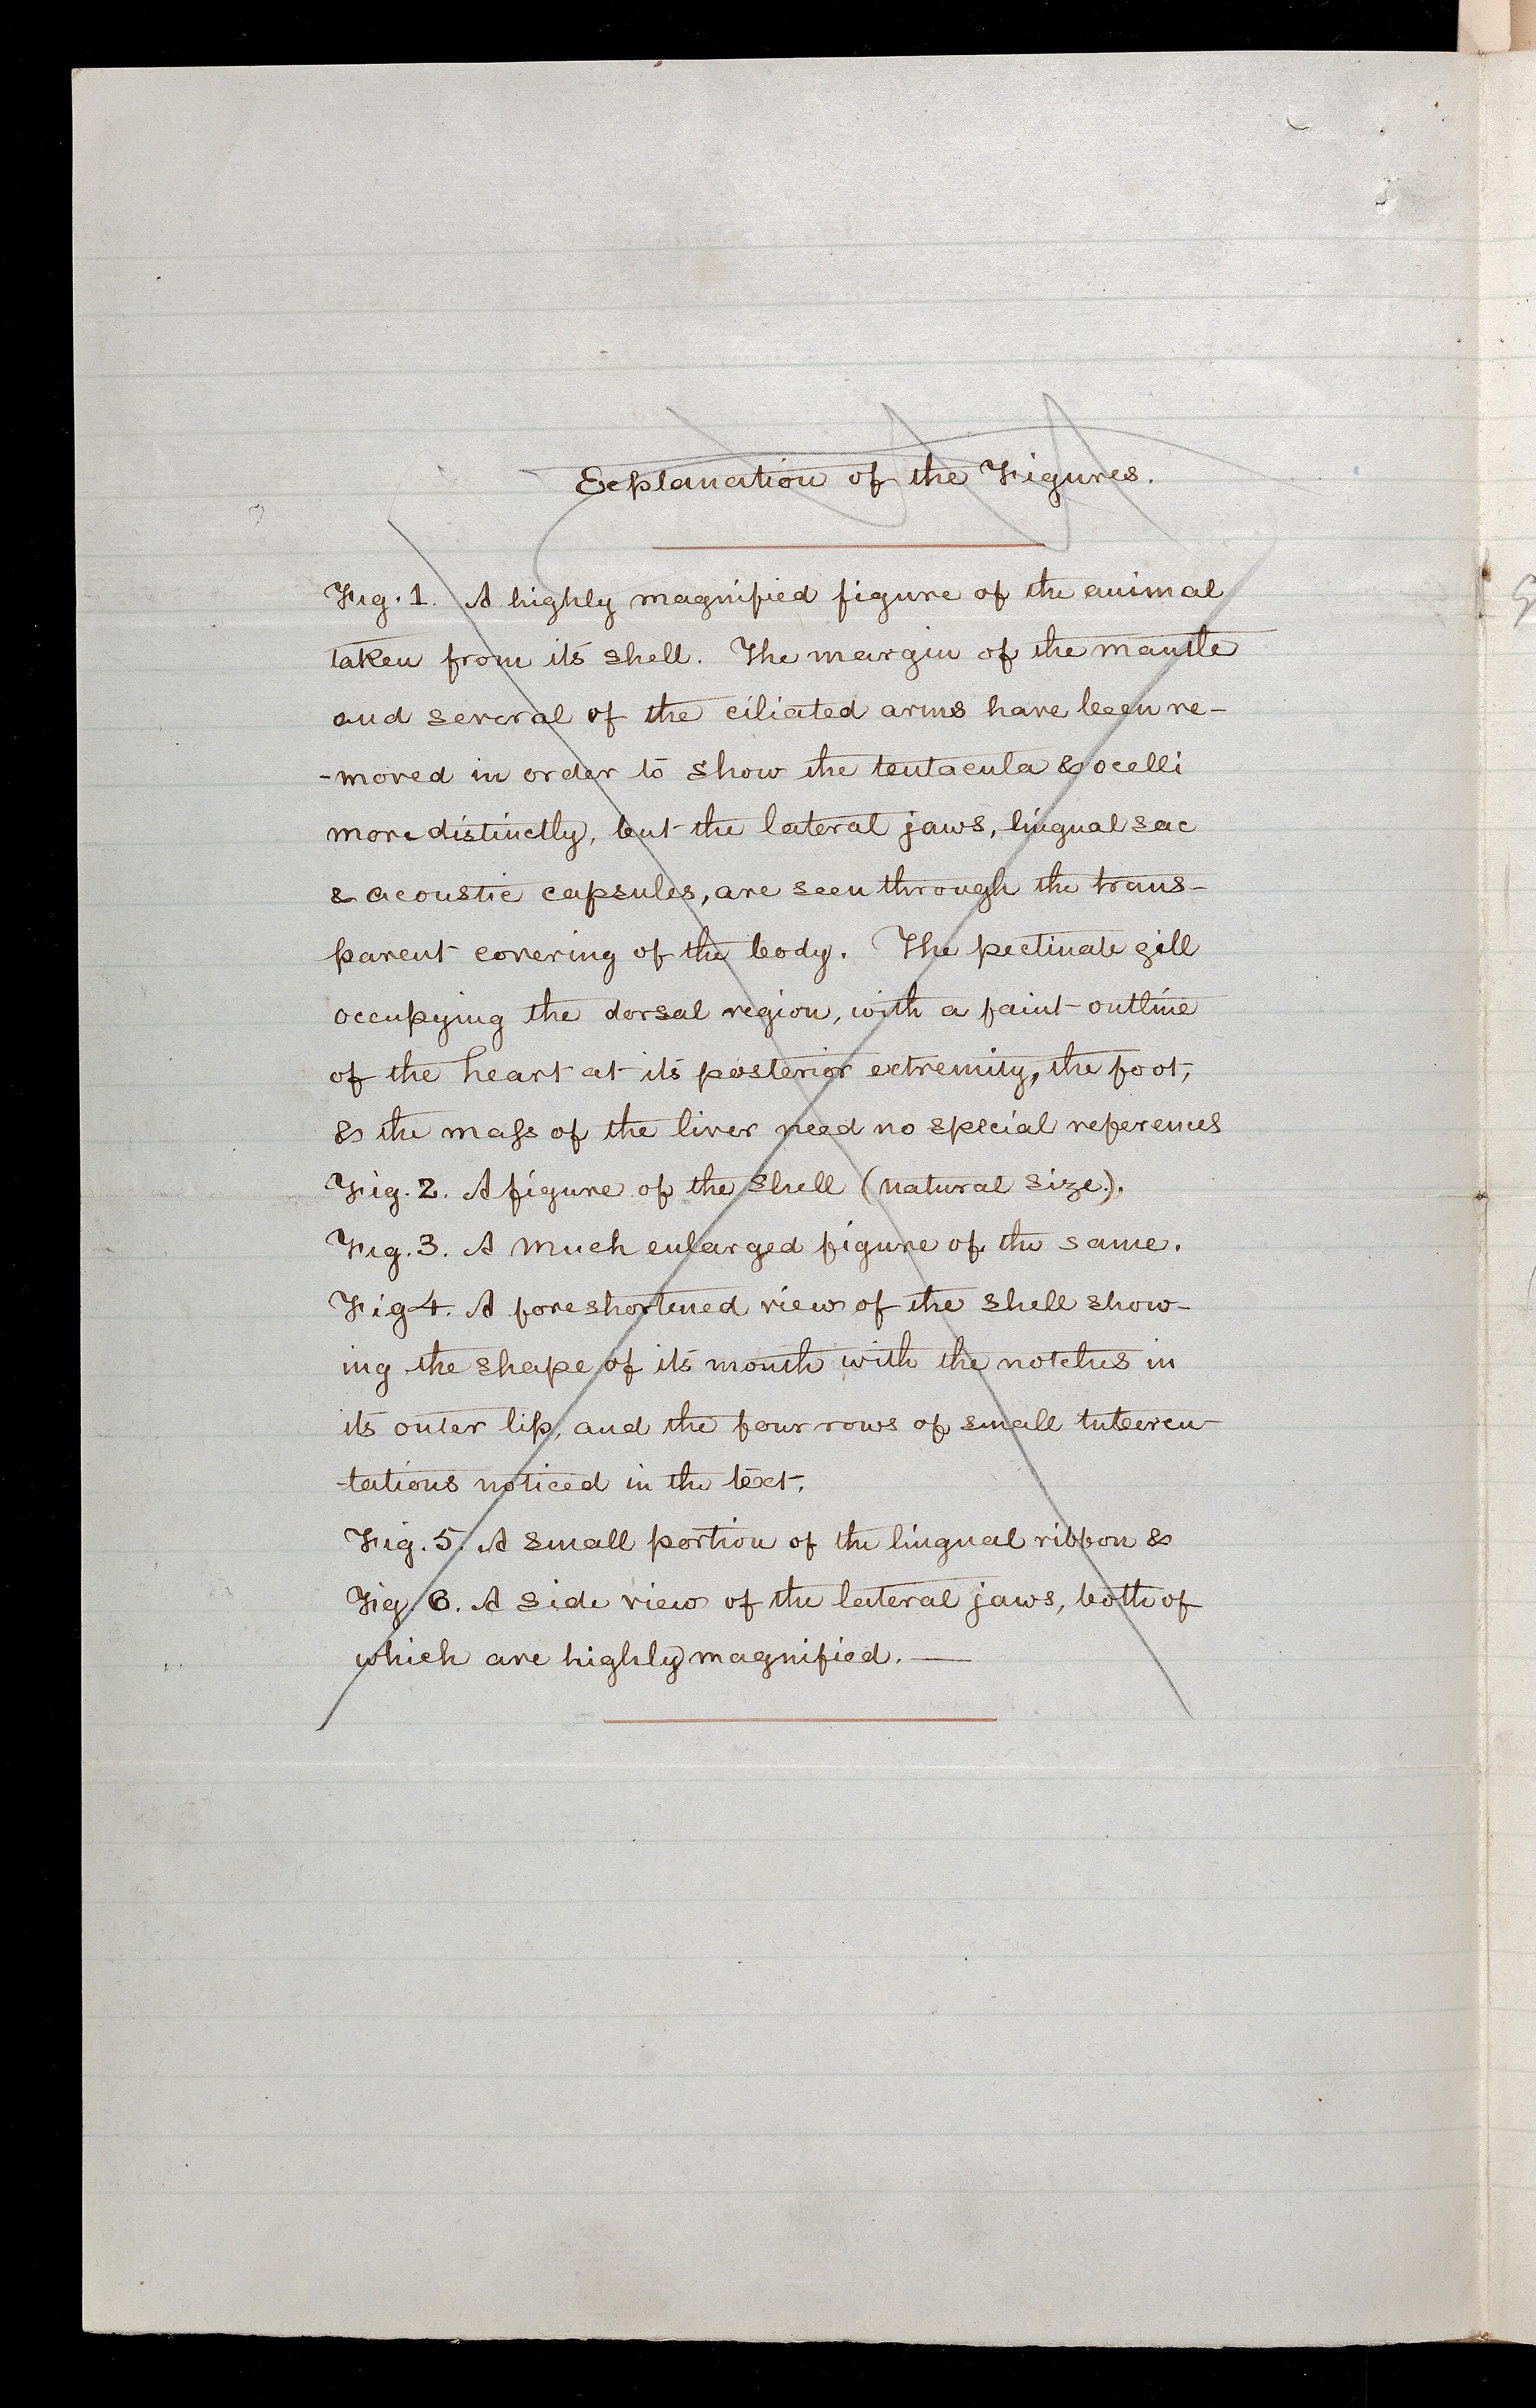 Explanation of the Figures.
Fig. 1. A highly magnified figure of the animal
taken from its shell. The margin of the mantle
and several of the ciliated arms have been re-
-moved in order to show the tentacula & ocelli
more distinctly, but the lateral jaws, lingual sac
& acoustic capsules, are seen through the trans-
parent covering of the body. The pectinate gill
occupying the dorsal region, with a faint outline
of the heart at its posterior extremity, the foot,
& the mass of the liver need no special references
Fig. 2. A figure of the shell (natural size).
Fig. 3. A much enlarged figure of the same.
Fig 4. A foreshortened view of the shell show-
ing the shape of its mouth with the notches in
its outer lip, and the four rows of small tubercu-
-tations noticed in the text.
Fig. 5. A small portion of the lingual ribbon &
Fig. 6. A side view of the lateral jaws, both of
which are highly magnified. —